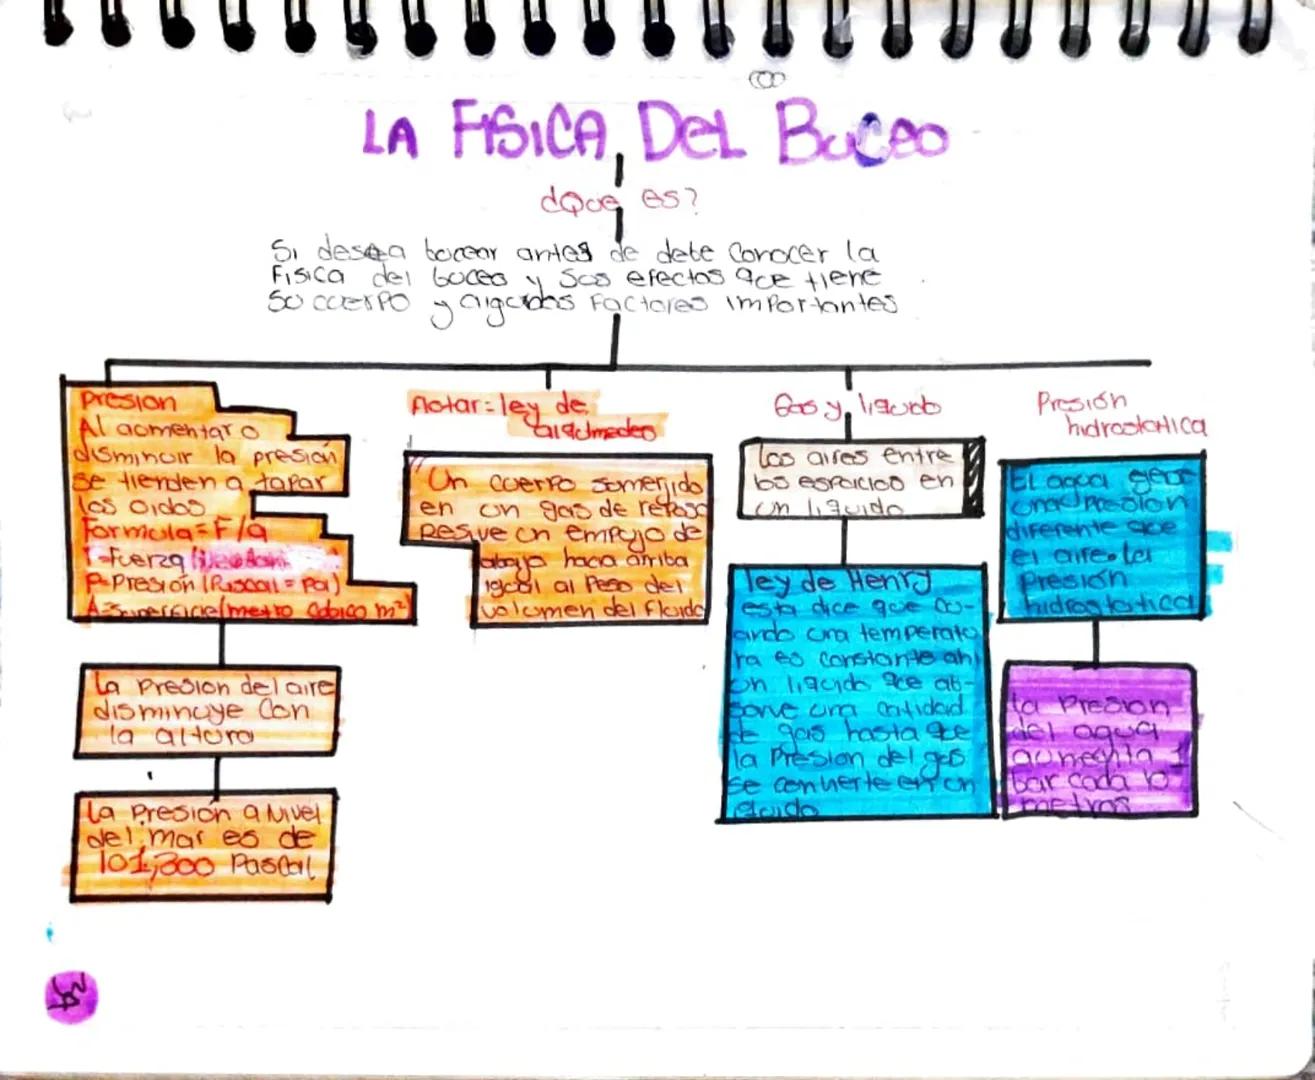 LA FISICA DEL BUCEO
¿Que es?
Si desea bucear antes de debe conocer la
Fisica del buceo y sus efectos que tiene
su cuerpo y algunos factores importantes
presion
Al aumentar o
disminuir la presión
se tienden a tapar
los oidos
Formula = F/a
F=fuerza
P=Presión (Pascal = Pa)
A=Superficie (metro cubico m²)
La Presion del aire
disminuye con
la altura
La Presión a Nivel
del mar es de
101,300 Pascal
flotar = ley de
alquimedes
Un cuerpo somerjido
en un gas de reposo
Resive un empujo de
abajo hacia arriba
igual al peso del
volumen del fluido
Gas y liquido
los aires entre
los espacios en
un liquido
ley de Henry
esta dice que cu-
ando una temperatu
ra es constante ahi
un liquido que ab-
sorve una cantidad
de gas hasta que
la Presion del gas
se convierte en un
liquido
Presión
hidrostatica
El agua
una presion
diferente que
el aire. La
Presión
hidrostatica
La presion
del agua
aumenta 1
bar cada 10
metros